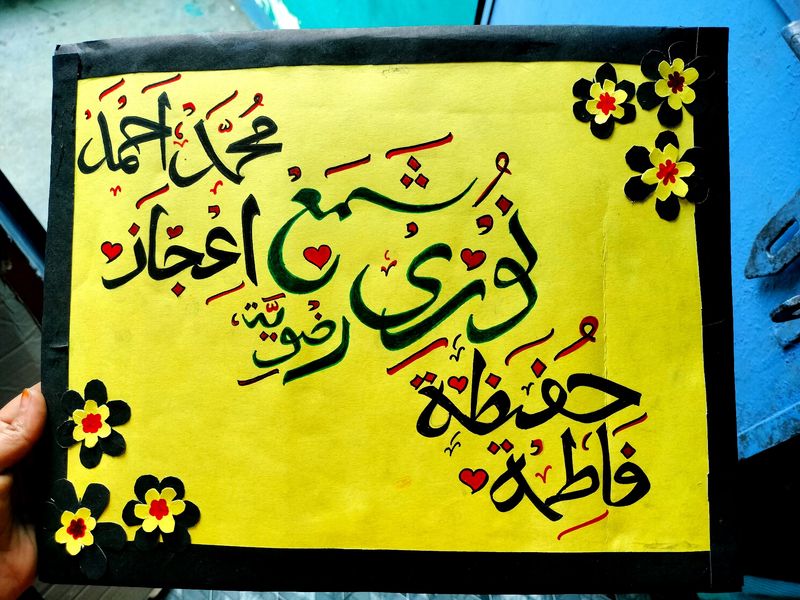 محمد احمد
اعجاز
شمع
نوری
رضویة
حفیظة
فاطمة